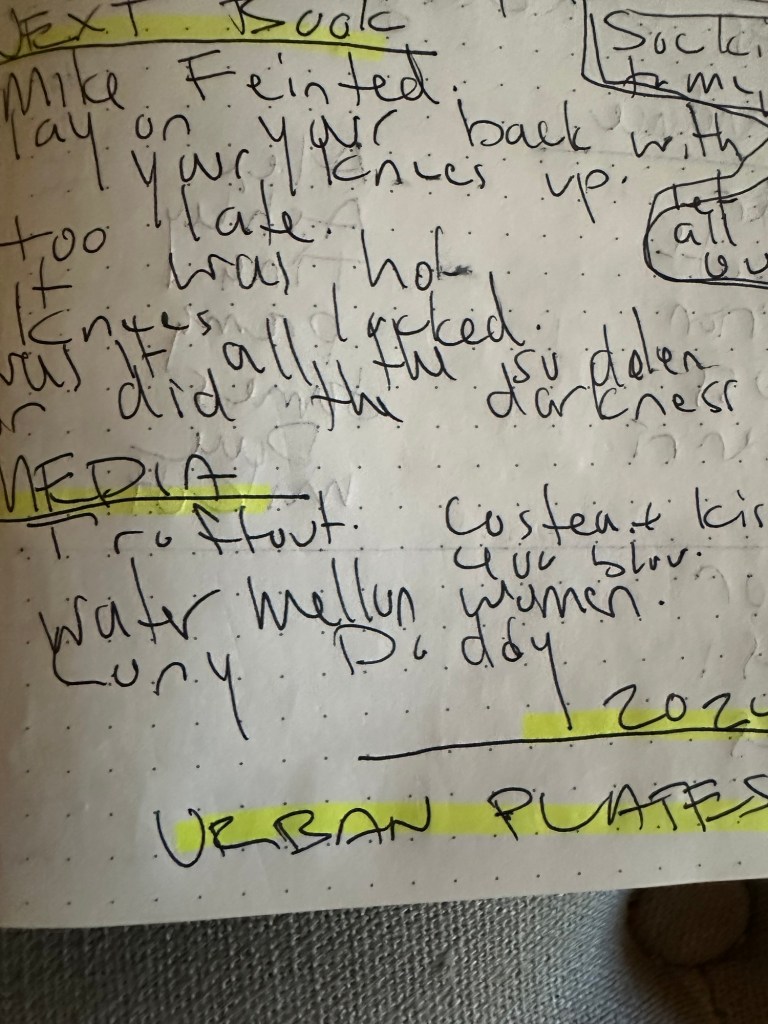 NEXT Book
Mike Feinted.
lay on your back with
your knees up.
too late.
It was hot
knees locked.
was it all the su dden
or did the darkness
Socki
to my
let
all
ou
MEDIA
Costeat kis
Water Mellon women.
Lury Daddy
2024
URBAN PLATES